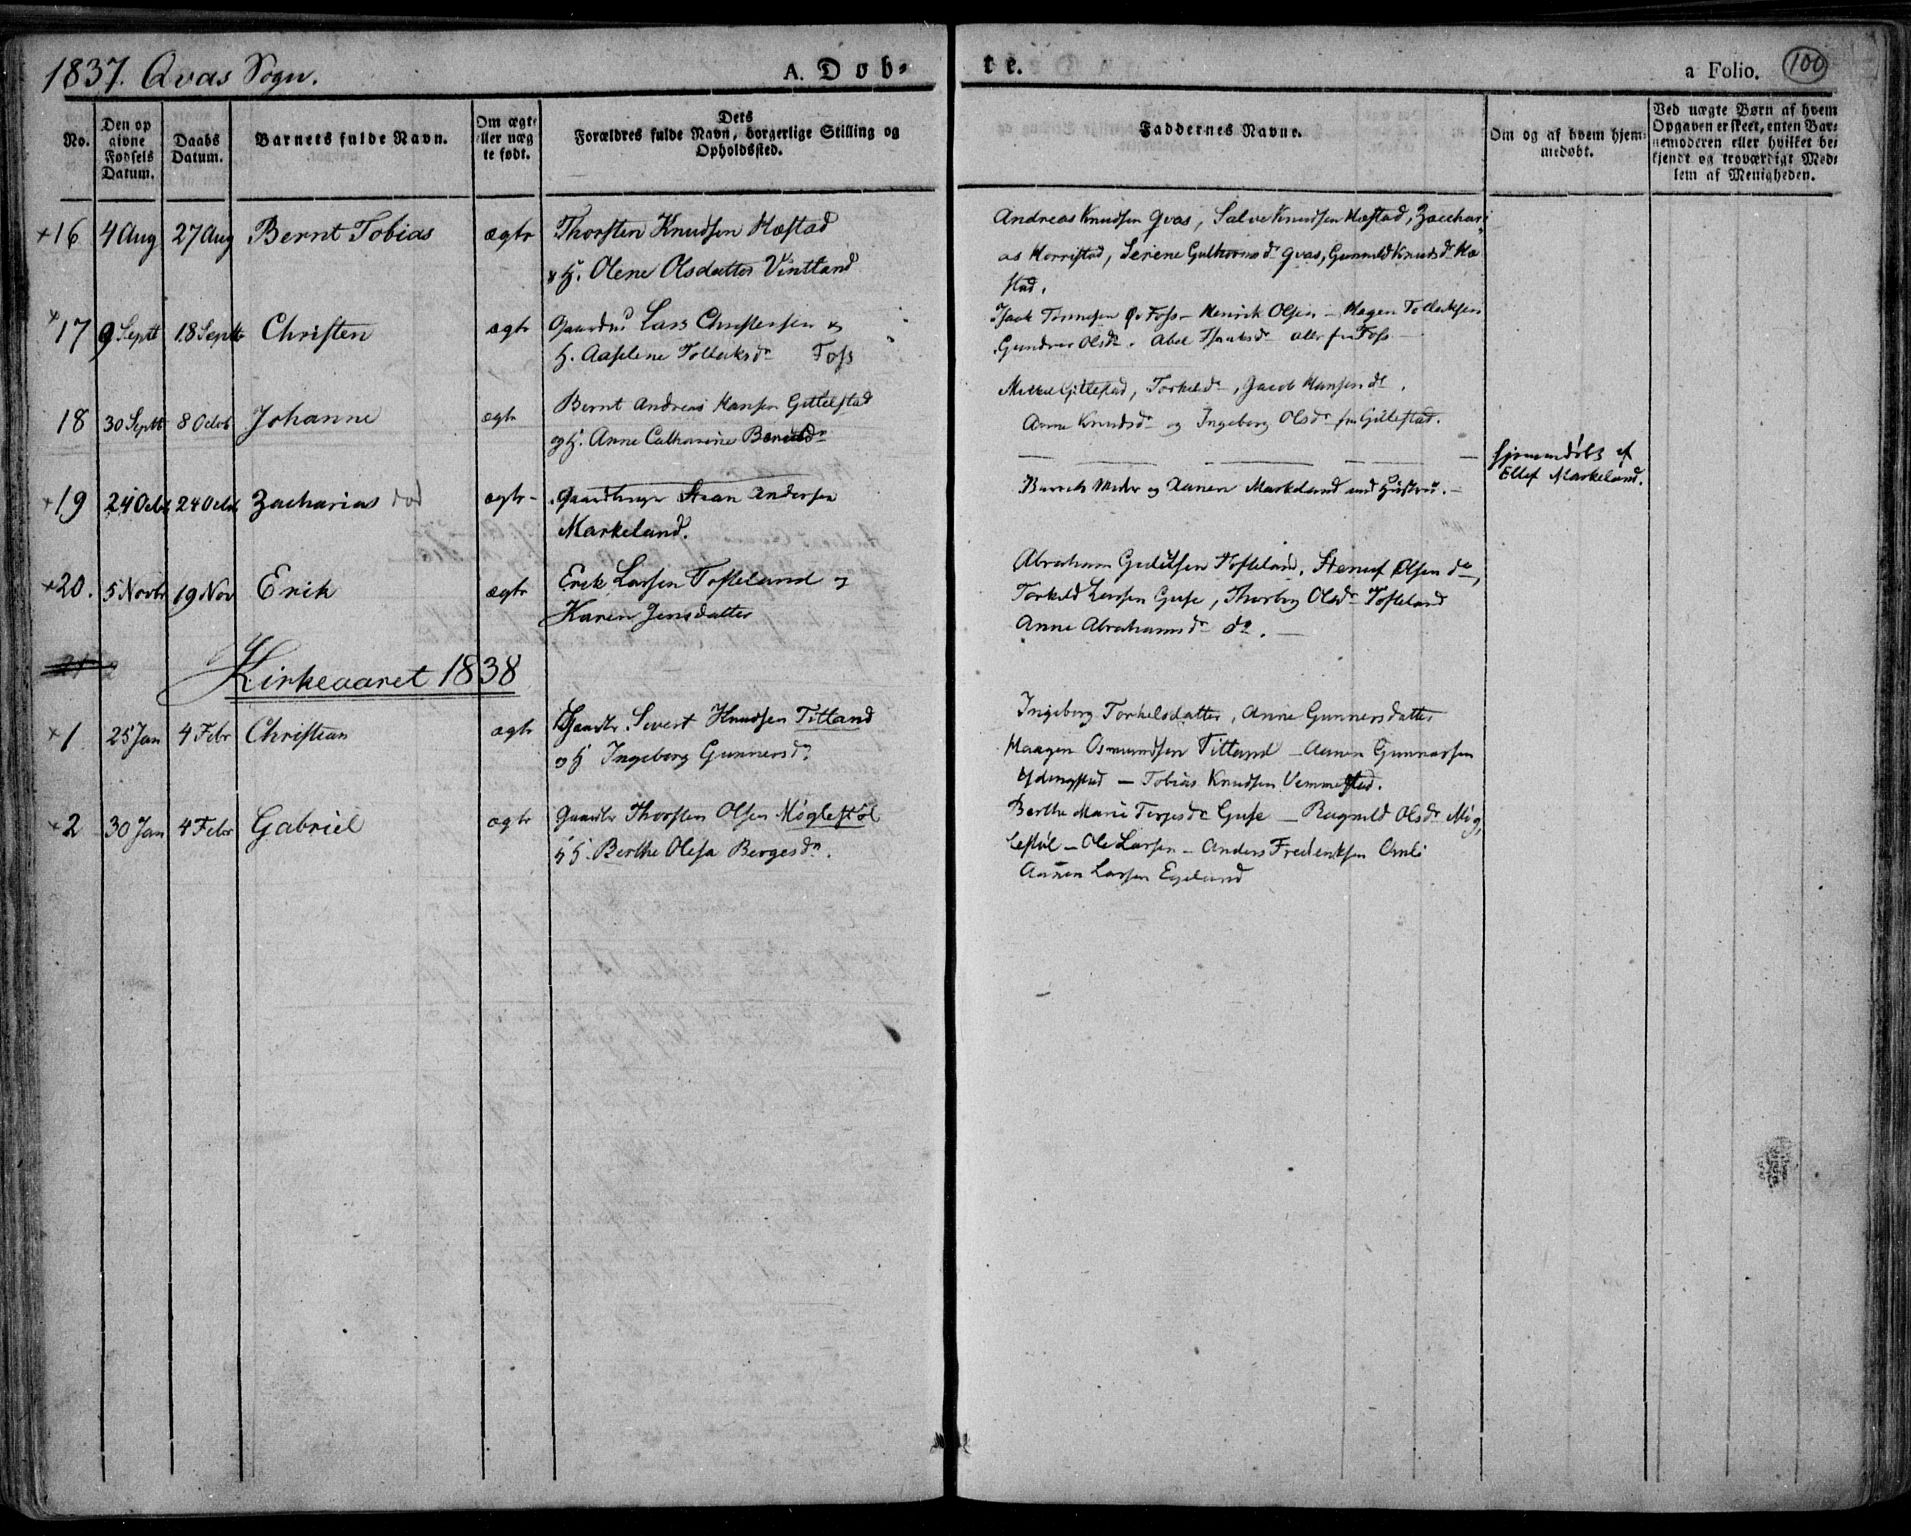 1837. Qvas Sogn.
A. Døb-
te.
a Folio. 100
No.
Den op
givne
Fødsels
Datum.
Daabs
Datum.
Barnets fulde Navn.
Om ægte
eller uæg
te født.
Dets
Forældres fulde Navn, borgerlige Stilling og
Opholdssted.
Faddernes Navne.
Om og af hvem hjem-
medøbt.
Ved uægte Børn af hvem
Opgaven er skeet, enten Bar-
nemoderen eller hvilket be-
kjendt og troværdigt Med-
lem af Menigheden.
+16 4 Aug 27 Aug Bernt Tobias ægte Thorsten Knudsen Hæstad
H. Olene Olsdatter Vintland
Andreas Knudsen Qvas, Salve Knudsen Hæstad, Zacchari
as Herristad, Serene Guthormsdr Qvas, Gunnild Knudsdr Hæ
stad.
+17 9 Septt 18 Septt Christen ægte Lars Christensen
H. Aaselene Tollaksdr Foss
Foss - Henrik Olsen - Hagen Tollaksen
Olsdr. Abel Isaaksdr alle fra Foss
18 30 Septt 8 Octob Johanne ægte Bernt Andreas Hansen Gitlestad
og H. Anne Catharine
Gitlestad, Jacob Hansen do.
Anne Knudsdr og Ingeborg Olsdr fra Gitlestad.
+19 24 Octb 24 Octb Zacharias død ægte Andersen
Markeland.
og Aanen Markeland med Hustru.
hjemmedøbt af
Ellef Markeland.
+20. 5 Novbr 19 Nov Erik ægte Erik Larsen Tofteland
Karen Jensdatter
Abraham Tofteland, Olsen do,
Torkild Larsen Guse, Thorborg Olsdr Tofteland
Anne Abrahamsdr do.
21
Kirkeaaret 1838
+1 25 Jan 4 Febr Christian ægte Gaardbr. Sivert Knudsen Titland
og H Ingeborg Gunnersdr.
Ingeborg Torkelsdatter, Anne Gunnersdatter
Haagen Osmundsen Titland - Aanen Gunnarsen
- Tobias Knudsen Vemmestad.
+2 30 Jan 4 Febr Gabriel ægte Gaardbr Thorsten Olsen Møglestøl
H. Berthe Olesa Bergesdr.
Berthe Marie Terjesdr Guse - Ragnild Olsdr Møg
lestøl - Ole Larsen - Anders Fredriksen
Aanen Larsen Egeland